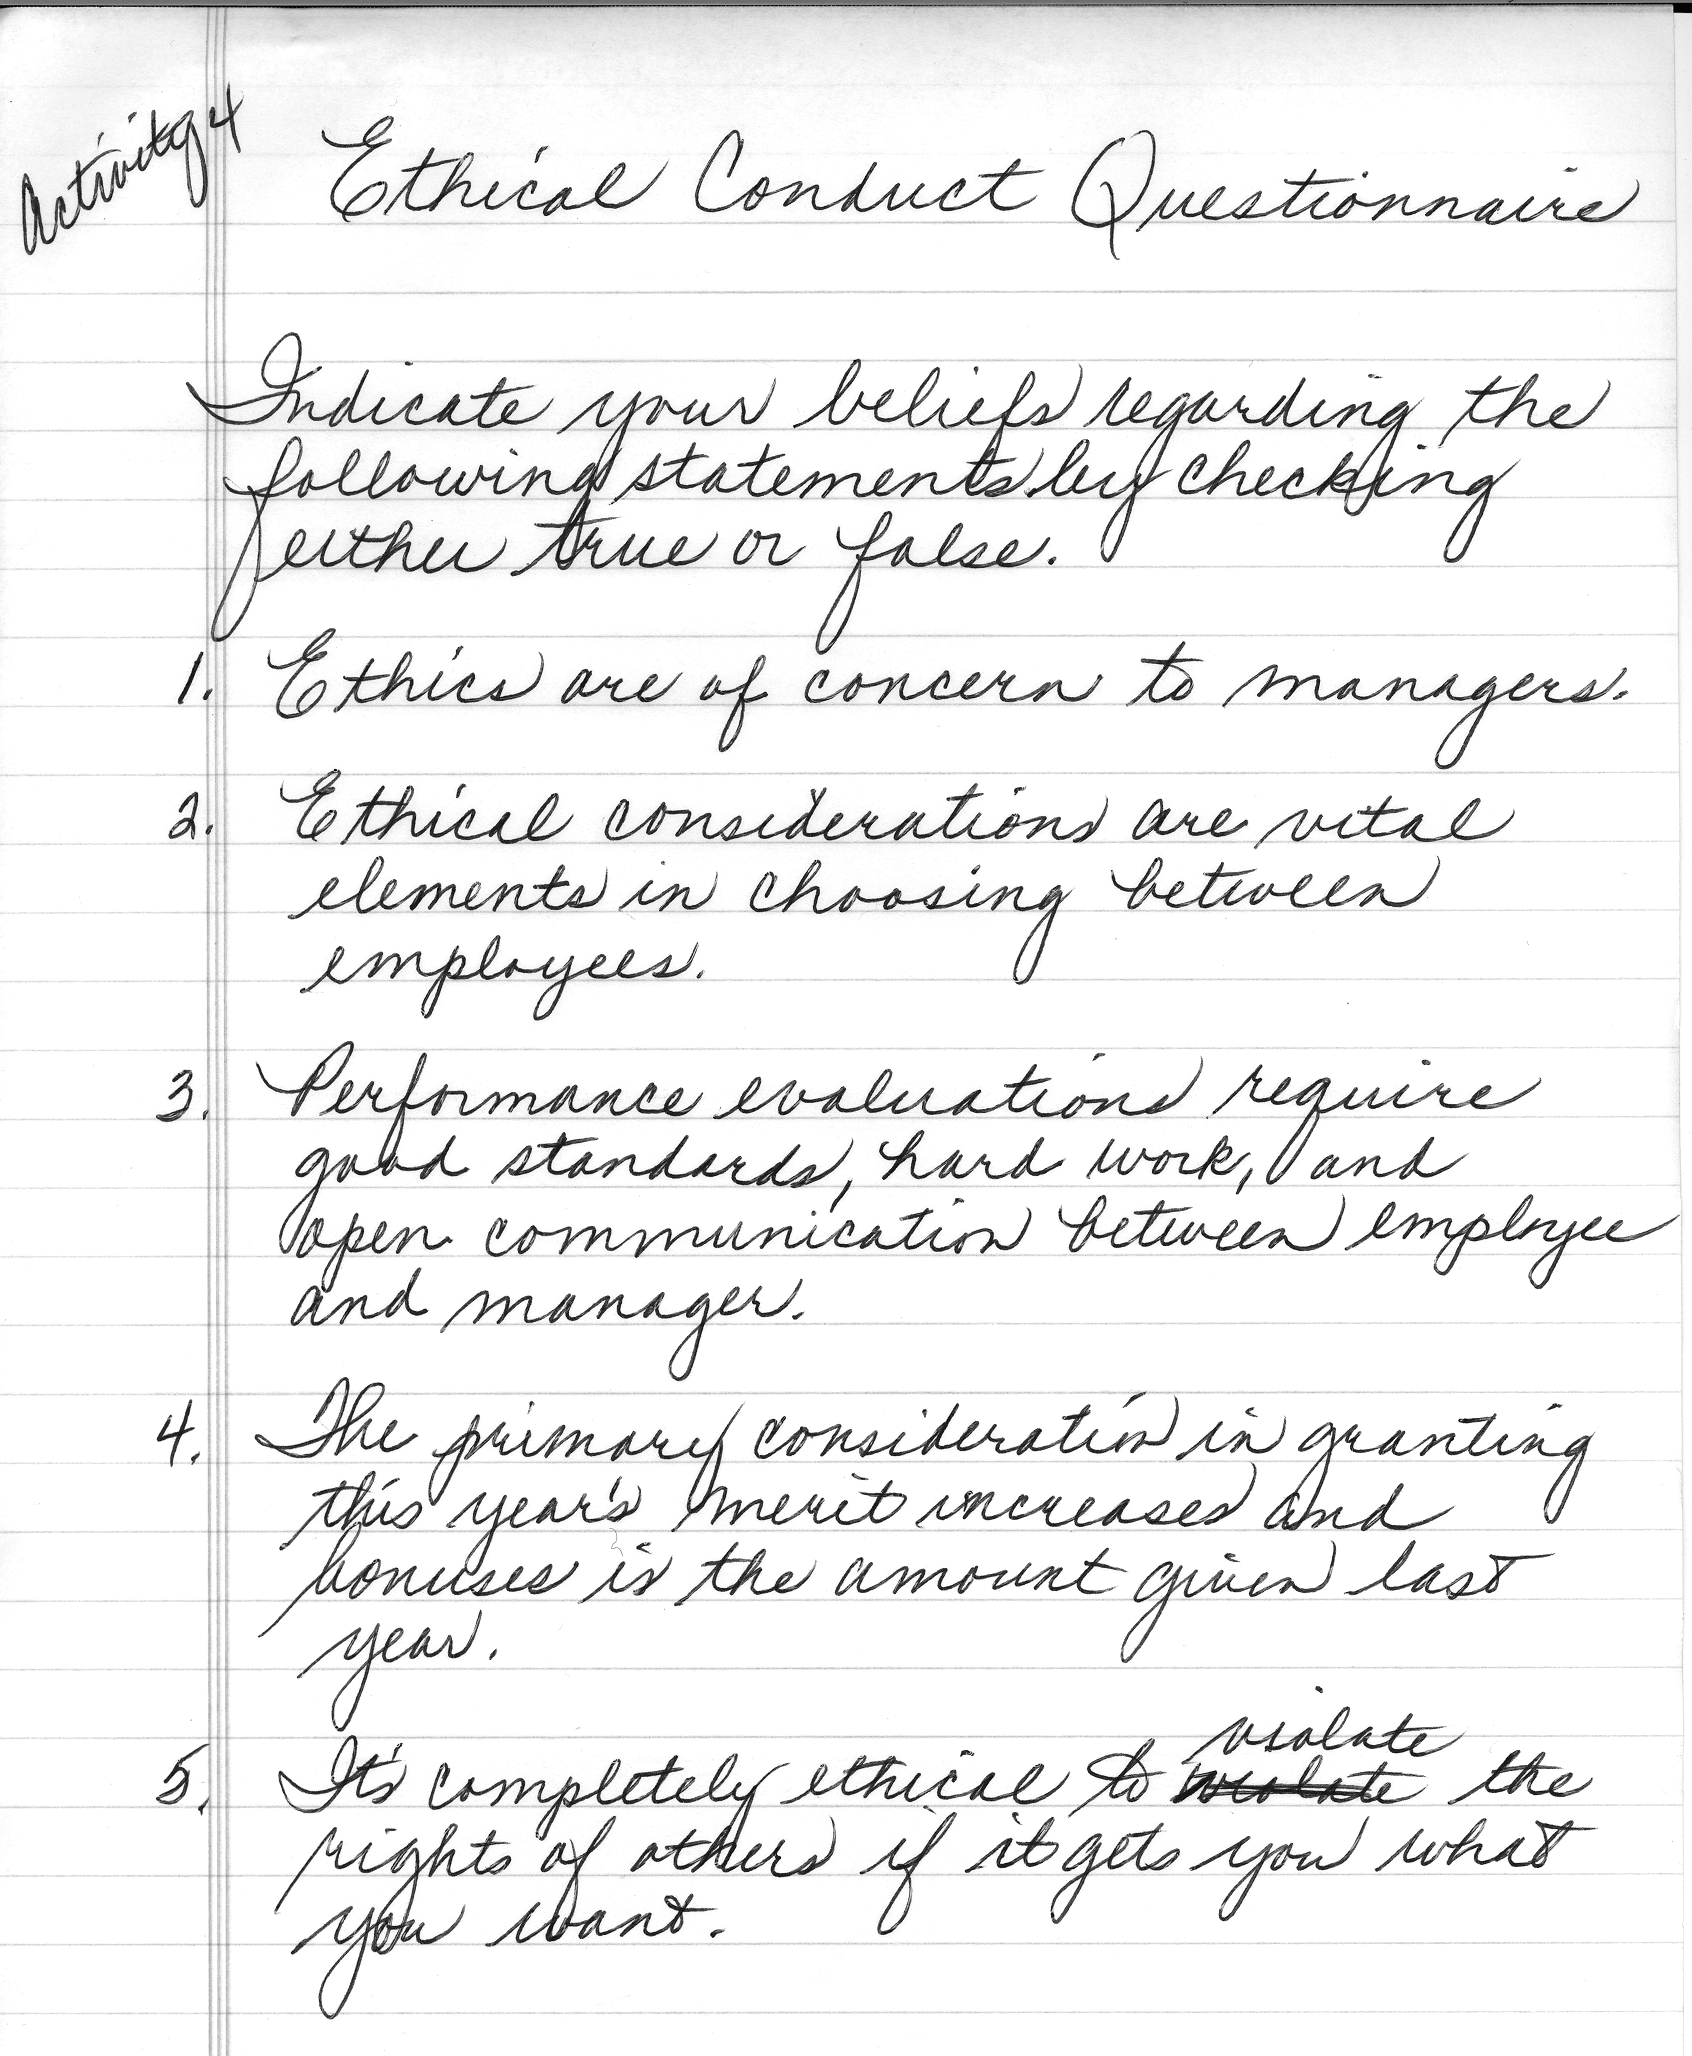 Activity 4
Ethical Conduct Questionnaire
Indicate your beliefs regarding the
following statements by checking
either true or false.
1. Ethics are of concern to managers.
2. Ethical considerations are vital
elements in choosing between
employees.
3. Performance evaluations require
good standards, hard work, and
open communication between employee
and manager.
4. The primary consideration in granting
this year's merit increases and
bonuses is the amount given last
year.
violate
5. It's completely ethical to the
rights of others if it gets you what
you want.